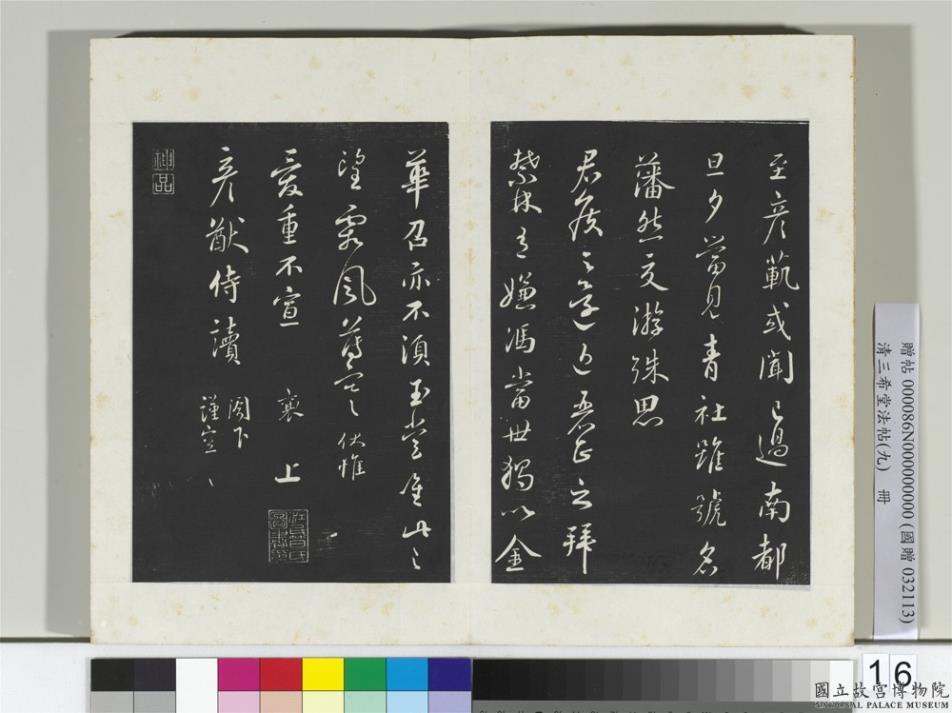 至彥範或聞已過南都
旦夕當見青社雖號名
藩然交游殊思
君侯之還近麗正之拜
禁林有嫌馮當世獨以金
華召亦不須玉堂唯此之
望霜風薄寒伏惟
愛重不宣 襄 上
彥猷侍讀 閣下
謹空
神品
贈帖 000086N000000000 (國贈 032113)
清三希堂法帖(九) 冊
16
國立故宮博物院
NATIONAL PALACE MUSEUM